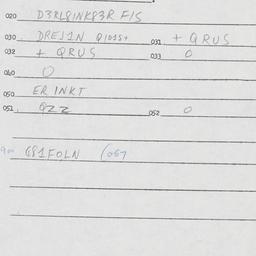 020 D3RL8INK83R F/S
030 DREJ1N Q1015+ 031 + QRUS
032 + QRUS 033 0
040 0
050 ER INKT
051 QZZ 052 0
G81FOLN (057